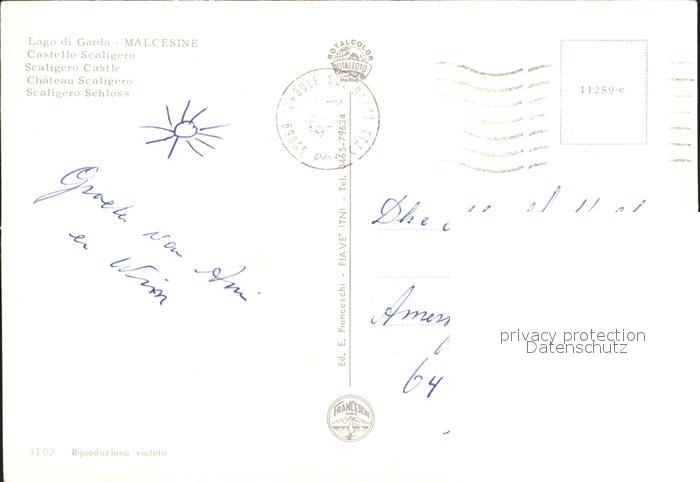 Lago di Garda - MALCESINE
Castello Scaligero
Scaligero Castle
Château Scaligero
Scaligero Schloss
ROTALCOLOR
ROTALFOTO
11259-c
Groeten van Ami
en Wim
Ed. E. Franceschi - FIAVE' (TN) - Tel. 0465-79634
Dhr
64
privacy protection
Datenschutz
FRANCESCHI
3102 Riproduzione vietata